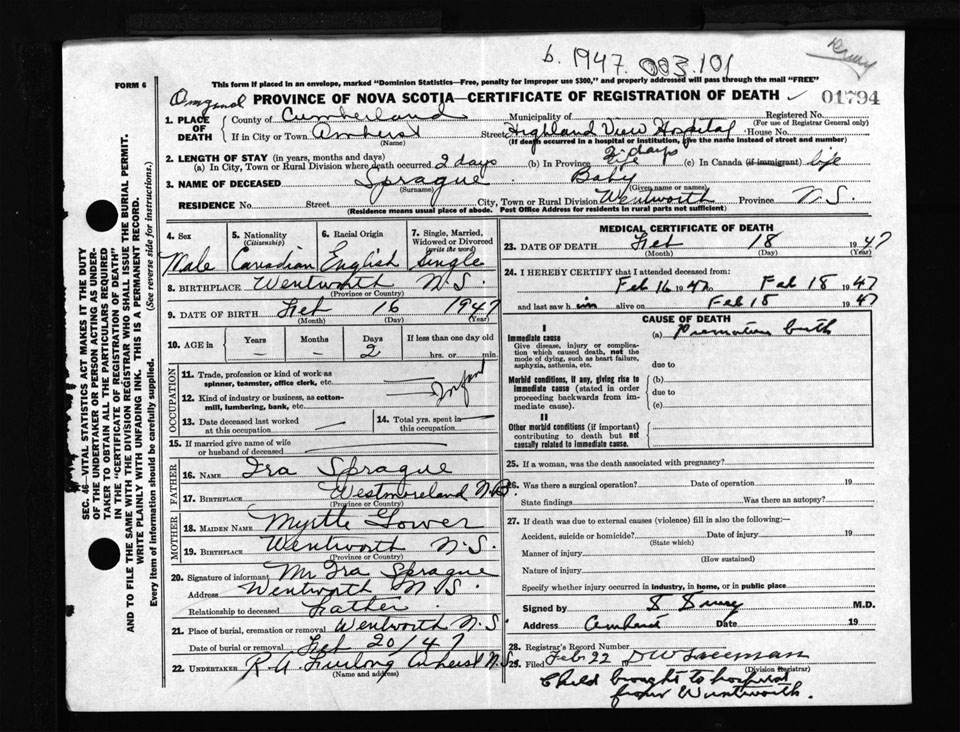 b. 1947. 083.101
FORM 6
This form if placed in an envelope, marked "Dominion Statistics—Free, penalty for improper use $300," and properly addressed will pass through the mail "FREE"
PROVINCE OF NOVA SCOTIA—CERTIFICATE OF REGISTRATION OF DEATH
01794
1. PLACE OF DEATH
County of Cumberland
Municipality of
Registered No.
(For use of Registrar General only)
If in City or Town Amherst Street Highland View Hospital House No.
(Name) (If death occurred in a hospital or institution, give the name instead of street and number)
2. LENGTH OF STAY (in years, months and days)
(a) In City, Town or Rural Division where death occurred 2 days (b) In Province Life 2 days (c) In Canada (if immigrant) life
3. NAME OF DECEASED Sprague Baby
(Surname) (Given name or names)
RESIDENCE No. Street City, Town or Rural Division Wentworth Province N.S.
(Residence means usual place of abode. Post Office Address for residents in rural parts not sufficient)
SEC. 46—VITAL STATISTICS ACT MAKES IT THE DUTY
OF THE UNDERTAKER OR PERSON ACTING AS UNDERTAKER
TO OBTAIN ALL THE PARTICULARS REQUIRED
IN THE "CERTIFICATE OF REGISTRATION OF DEATH"
AND TO FILE THE SAME WITH THE DIVISION REGISTRAR WHO SHALL ISSUE THE BURIAL PERMIT.
WRITE PLAINLY WITH UNFADING INK. THIS IS A PERMANENT RECORD.
Every item of information should be carefully supplied. (See reverse side for instructions.)
4. Sex
Male
5. Nationality
(Citizenship)
Canadian
6. Racial Origin
English
7. Single, Married, Widowed or Divorced
(write the word)
Single
8. BIRTHPLACE Wentworth N.S.
(Province or Country)
9. DATE OF BIRTH Feb 16 1947
(Month) (Day) (Year)
10. AGE in Years Months Days If less than one day old
— — 2 hrs. or min.
OCCUPATION
11. Trade, profession or kind of work as
spinner, teamster, office clerk, etc.
12. Kind of industry or business, as cotton-
mill, lumbering, bank, etc.
Infant
13. Date deceased last worked
at this occupation
14. Total yrs. spent in
this occupation
15. If married give name of wife
or husband of deceased
FATHER
16. NAME Ira Sprague
17. BIRTHPLACE Westmoreland N.B.
(Province or Country)
MOTHER
18. MAIDEN NAME Myrtle Gower
19. BIRTHPLACE Wentworth N.S.
(Province or Country)
20. Signature of informant Mr Ira Sprague
Address Wentworth N S.
Relationship to deceased Father
21. Place of burial, cremation or removal Wentworth N.S.
Date of burial or removal Feb 20/47
22. UNDERTAKER R A Furlong Amherst N.S.
(Name and address)
MEDICAL CERTIFICATE OF DEATH
23. DATE OF DEATH Feb 18 1947
(Month) (Day) (Year)
24. I HEREBY CERTIFY that I attended deceased from:
Feb 16 1947 Feb 18 1947
and last saw him alive on Feb 18 1947
CAUSE OF DEATH
I
Immediate cause
Give disease, injury or complica-
tion which caused death, not the
mode of dying, such as heart failure,
asphyxia, asthenia, etc.
(a) Premature birth
due to
Morbid conditions, if any, giving rise to
immediate cause (stated in order
proceeding backwards from im-
mediate cause).
(b)
due to
(c)
II
Other morbid conditions (if important)
contributing to death but not
causally related to immediate cause.
25. If a woman, was the death associated with pregnancy?
26. Was there a surgical operation? Date of operation 19
State findings Was there an autopsy?
27. If death was due to external causes (violence) fill in also the following:—
Accident, suicide or homicide? Date of injury 19
(State which)
Manner of injury
(How sustained)
Nature of injury
Specify whether injury occurred in industry, in home, or in public place
Signed by M.D.
Address Amherst Date 19
28. Registrar's Record Number
29. Filed Feb 22
(Division Registrar)
Child brought to hospital
from Wentworth.